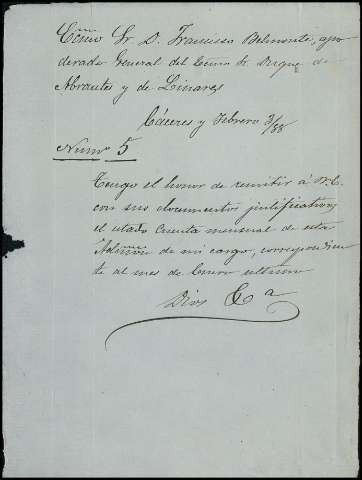 Excmo Sr. D. Francisco Belmonte, apo
derado General del Excmo Sr. Duque de
Abrantes y de Linares
Cáceres y Febrero 3/88
Num.º 5
Tengo el honor de remitir á V.E.
con sus documentos justificativos
el estado Cuenta mensual de esta
Admon de mi cargo, correspondien
te al mes de Enero último
Dios &a